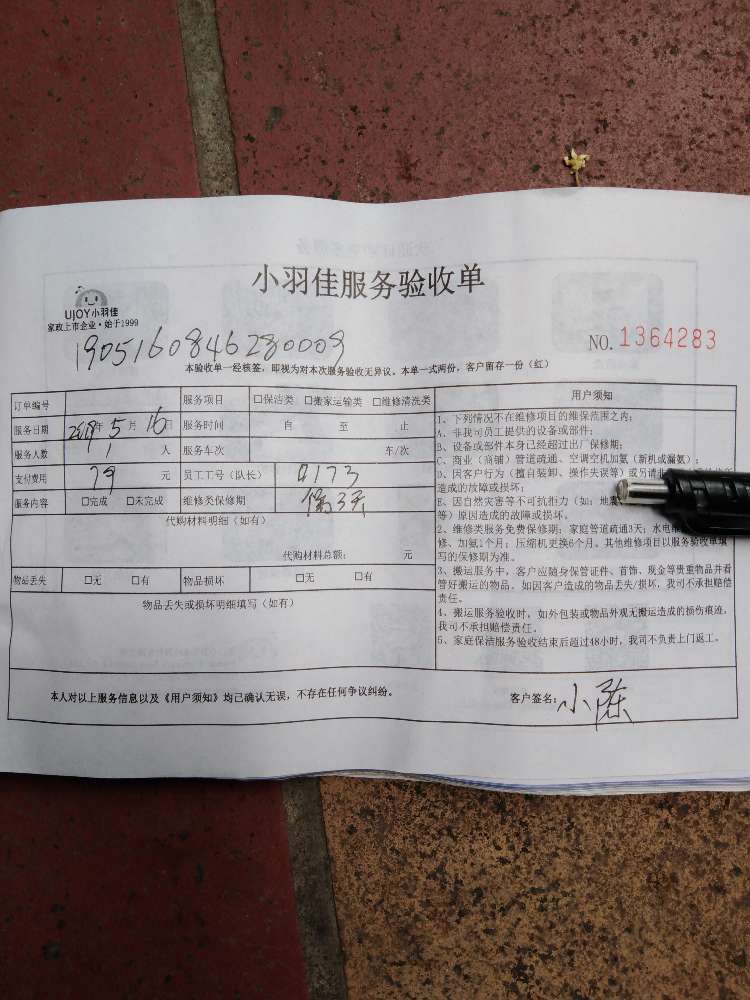 小羽佳服务验收单
UJOY小羽佳
家政上市企业·始于1999
NO. 1364283
1905160846280009
本验收单一经核签，即视为对本次服务验收无异议。本单一式两份，客户留存一份（红）
订单编号 服务项目 □保洁类 □搬家运输类 □维修清洗类
服务日期 2019年5月16日 服务时间 自 至 止
服务人数 1 人 服务车次 车/次
支付费用 79 元 员工工号（队长） 9173
服务内容 □完成 □未完成 维修类保修期 保3天
代购材料明细（如有）
代购材料总额： 元
物品丢失 □无 □有 物品损坏 □无 □有
物品丢失或损坏明细填写（如有）
用户须知
1、下列情况不在维修项目的维保范围之内：
A、非我司员工提供的设备或部件；
B、设备或部件本身已经超过出厂保修期；
C、商业（商铺）管道疏通、空调空机加氨（新机或漏氨）；
D、因客户行为（擅自装卸、操作失误等）或另请非
造成的故障或损坏；
E、因自然灾害等不可抗拒力（如：地震
等）原因造成的故障或损坏。
2、维修类服务免费保修期：家庭管道疏通3天；水电
修、加氨1个月；压缩机更换6个月。其他维修项目以服务验收单填
写的保修期为准。
3、搬运服务中，客户应随身保管证件、首饰、现金等贵重物品并看
管好搬运的物品，如因客户造成的物品丢失/损坏，我司不承担赔偿
责任。
4、搬运服务验收时，如外包装或物品外观无搬运造成的损伤痕迹，
我司不承担赔偿责任。
5、家庭保洁服务验收结束后超过48小时，我司不负责上门返工。
本人对以上服务信息以及《用户须知》均已确认无误，不存在任何争议纠纷。
客户签名：小陈